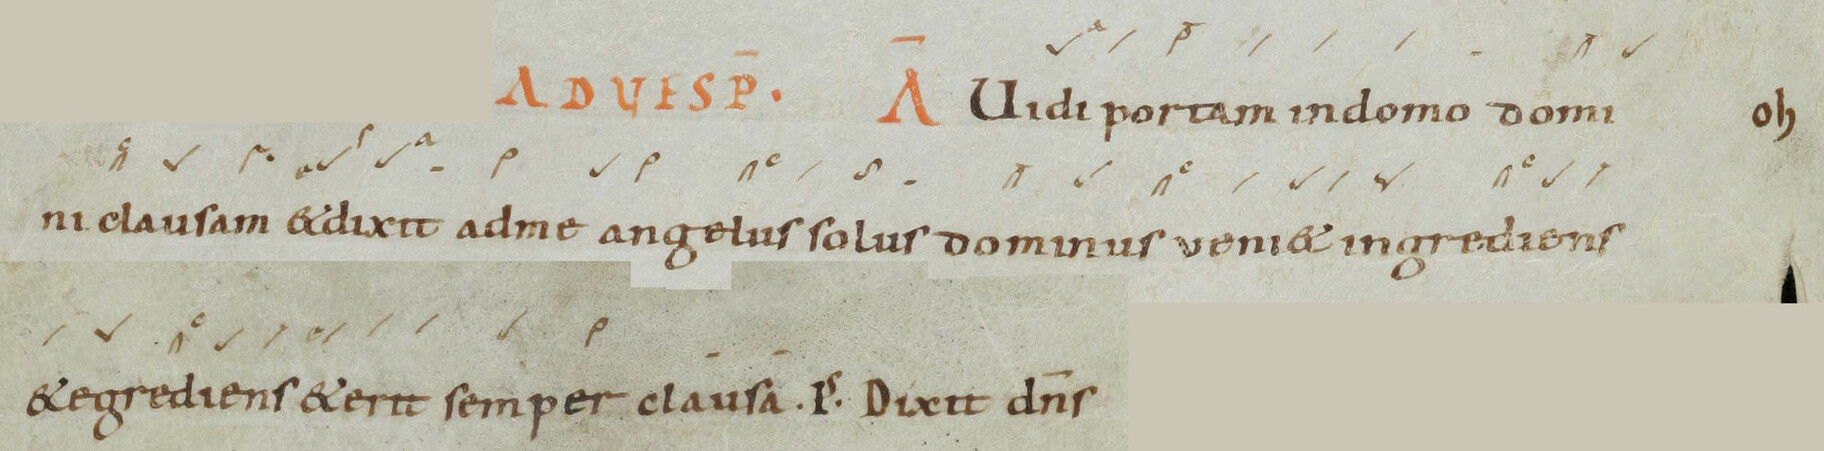 AD VESP̄. Ā Uidi portam in domo domi oh
ni clausam & dixit ad me angelus solus dominus veni& ingrediens
& egrediens & erit semper clausa. Ps. Dixit dn̄s